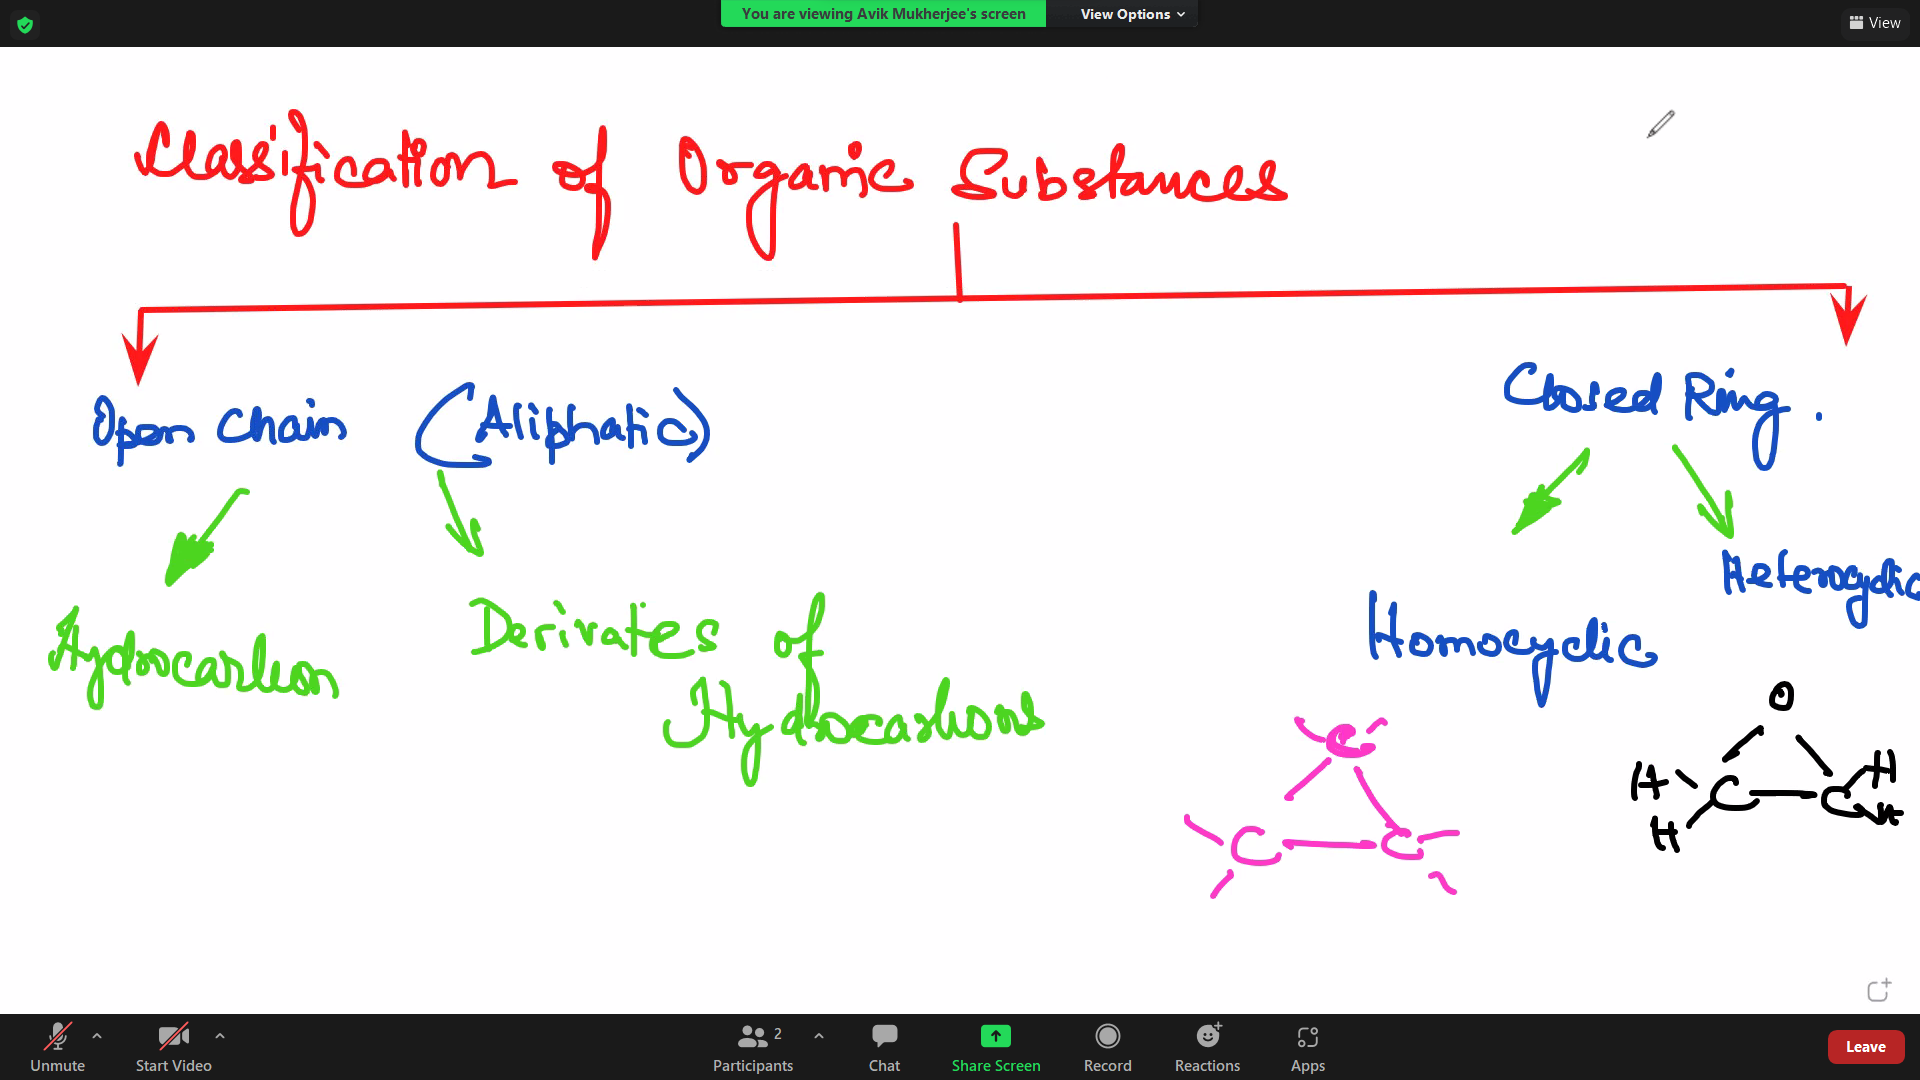 You are viewing Avik Mukherjee's screen
View Options
View
Classification of Organic Substances
Open Chain (Aliphatic)
Closed Ring.
Hydrocarbon
Derivates of
Hydrocarbons
Homocyclic
Heterocyclic
C
C C
O
H C C H
H H
Unmute
Start Video
Participants 2
Chat
Share Screen
Record
Reactions
Apps
Leave